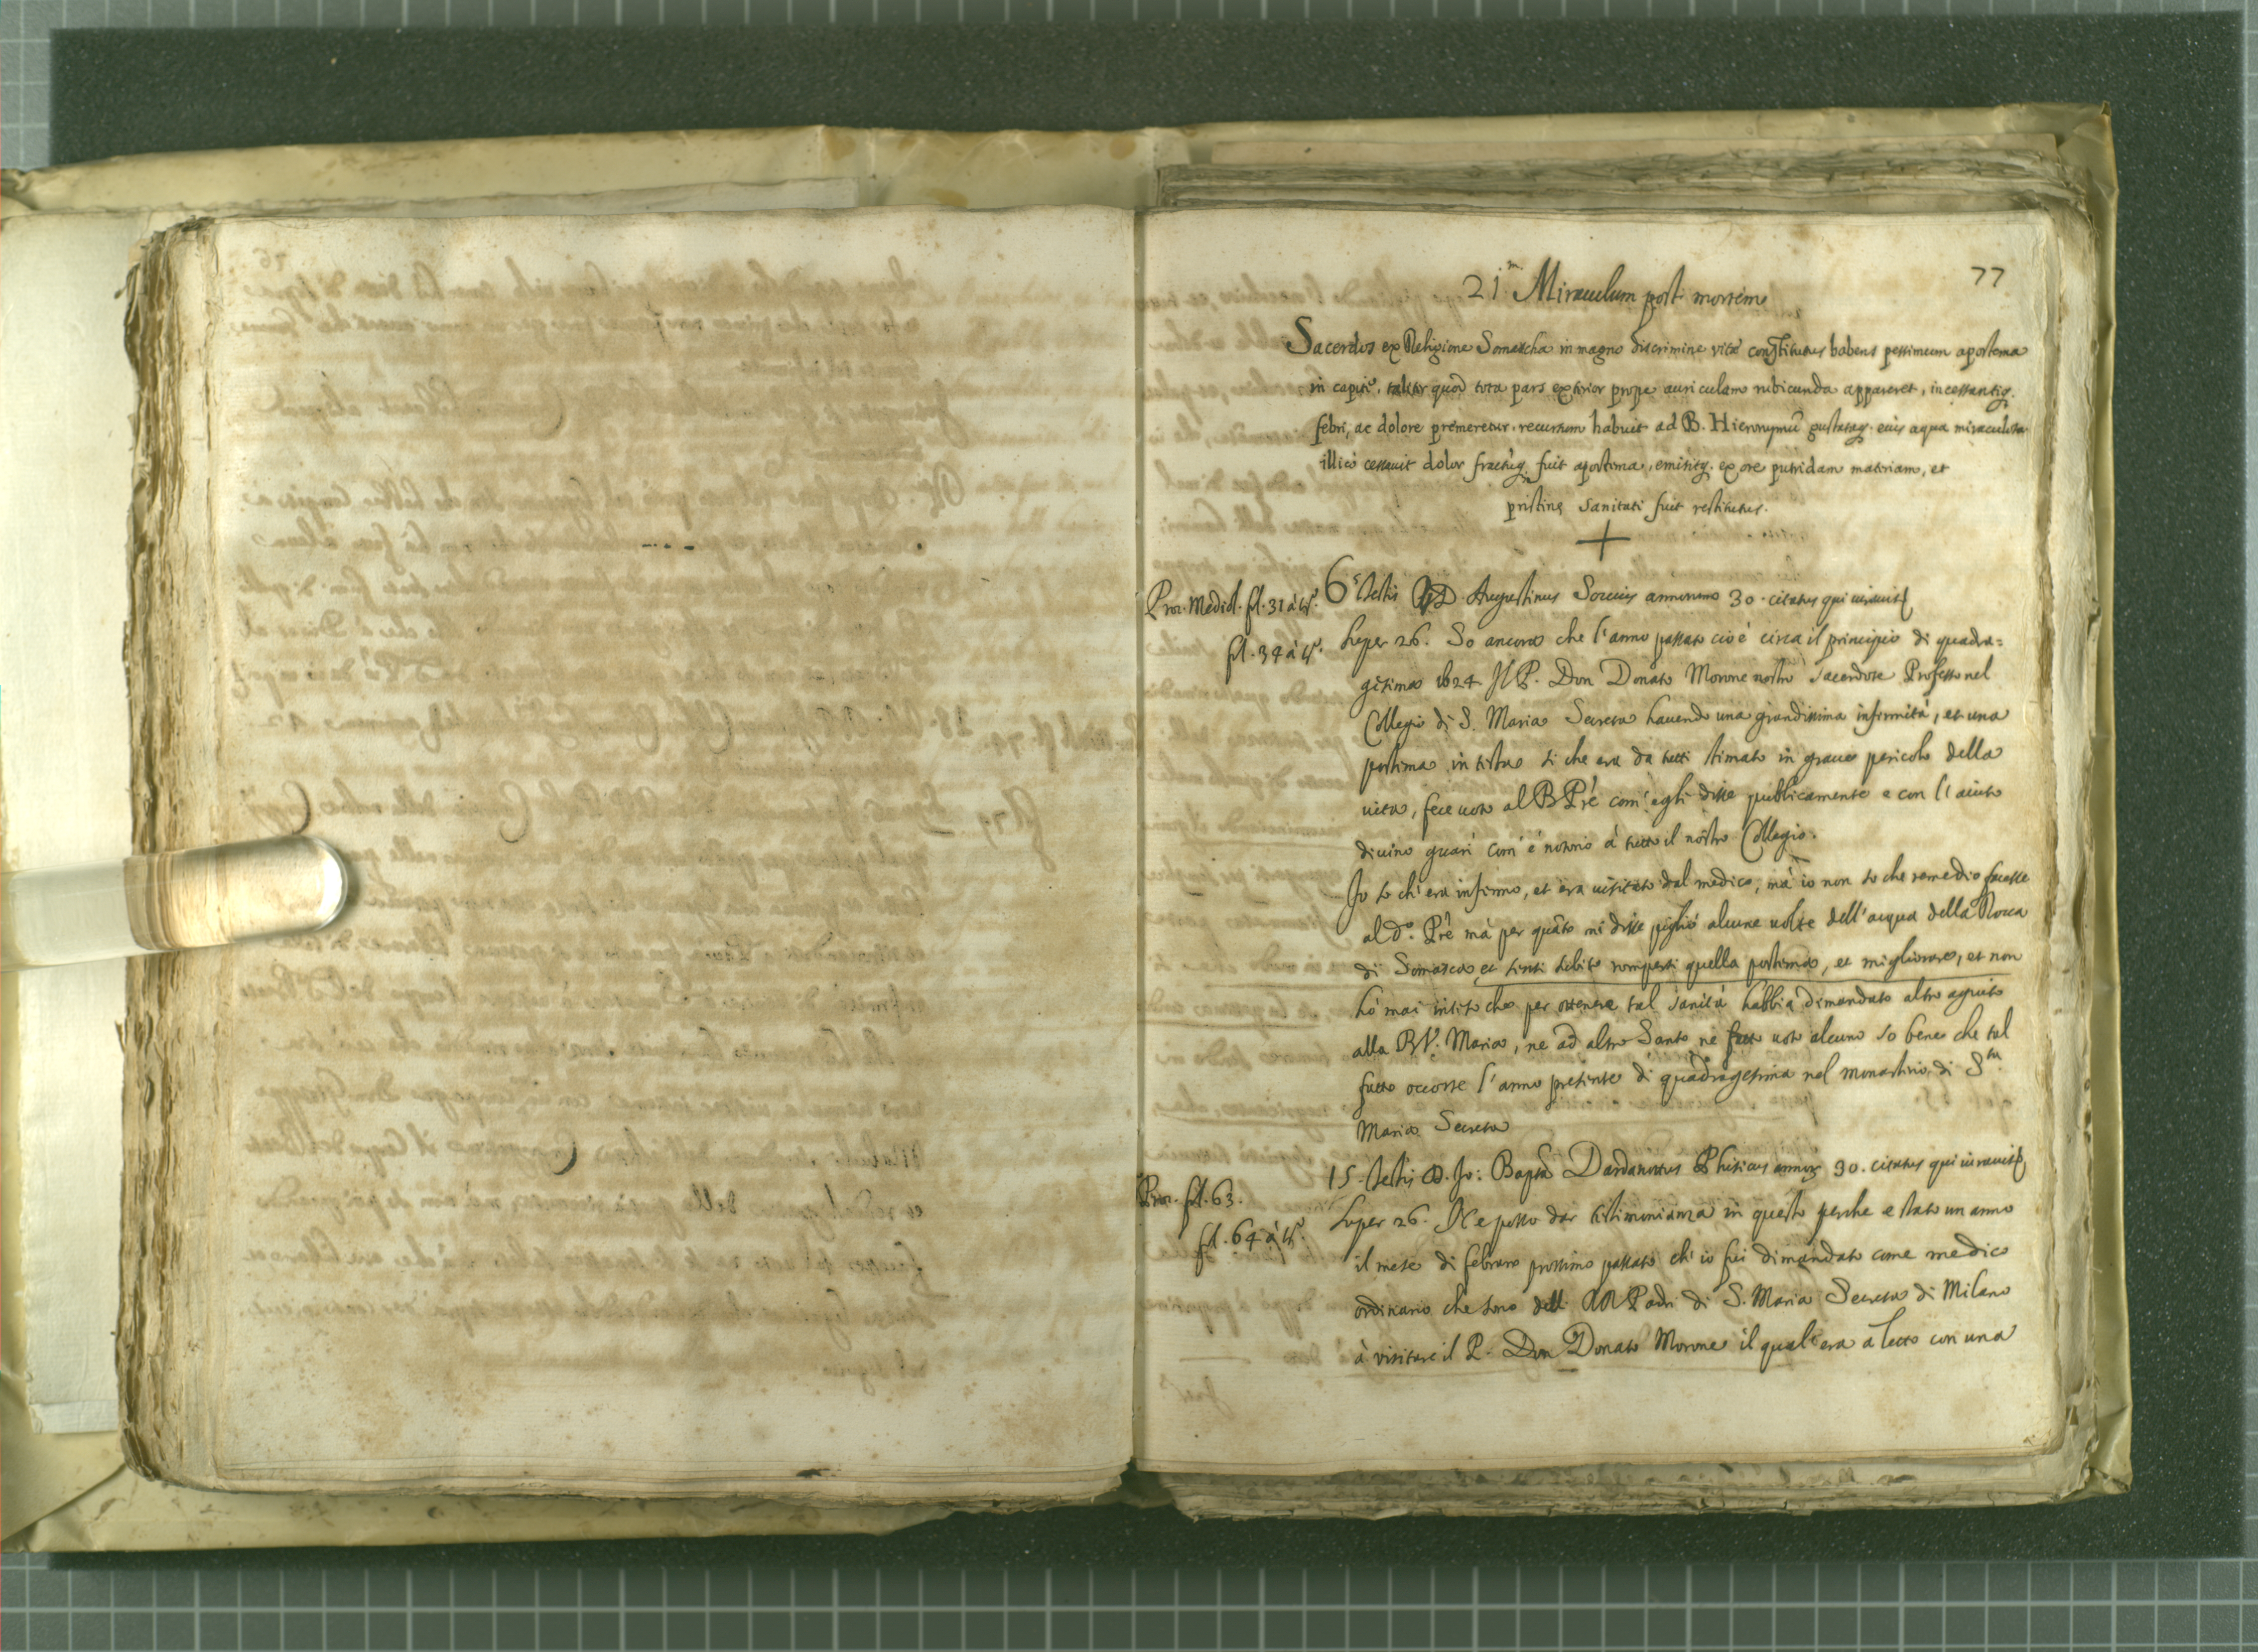 77
21.m Miraculum post mortem
Sacerdos ex Religione Somascha in magno discrimine vitæ constitutus habens pessimum apostema
in capite, taliter quod tota pars exterior prope auriculam rubicunda appareret, incessantiq.
febri, ac dolore premeretur. recursum habuit ad B. Hieronymū gustataq. eius aqua miraculosa
illico cessauit dolor fractūq. fuit apostema, emisitq. ex ore putridam materiam, et
pristinę sanitati fuit restitutus.
Proc. Mediol. fol. 31 à tº.
6.s testis D. Augustinus Soccius annorum 30. citatus qui iurauit
fol. 34 à tº.
super 26. So ancora che l'anno passato cioè circa il principio di quadra=
gesima 1624 Il P. Don Donato Morone nostro Sacerdote Professo nel
Collegio di S. Maria Secreta hauendo una grandissima infirmità, et una
postima in testa si che era da tutti stimato in graue pericolo della
uita, fece uoto al B Pre com'egli disse publicamente e con l'aiuto
diuino guarì com'è notorio à tutto il nostro Collegio.
Io so ch'era infirmo, et era uisitato dal medico, mà io non so che remedio facesse
al dº. Pre mà per quāto mi disse pigliò alcune uolte dell'acqua della Rocca
di Somasca et sentì subito rompersi quella postima, et migliorare, et non
hò mai inteso che per ottenere tal sanità habbia dimandato altro agiuto
alla B V. Maria, ne ad altro Santo ne fatto uoto alcuno so bene che tal
fatto occorse l'anno presente di quadragesima nel monasterio di S.ta
Maria Secreta
Proc. fol. 63.
15. testis D. Jo: Bapta Dardanonus Phisicus annor. 30. citatus qui iurauit
fol. 64 à tº.
super 26. Ne posso dar testimonianza in questo perche e stato un anno
il mese di febraro prossimo passato ch'io fui dimandato come medico
ordinario che sono delli RR Padri di S. Maria Secreta di Milano
à visitare il P. Don Donato Morone il qual'era a letto con una